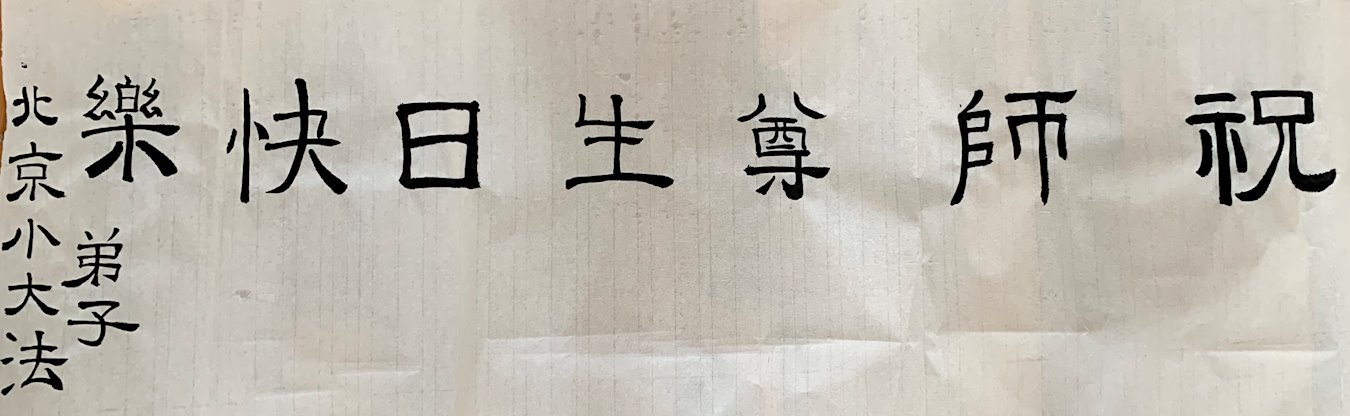 祝師尊生日快樂
弟子
北京小大法